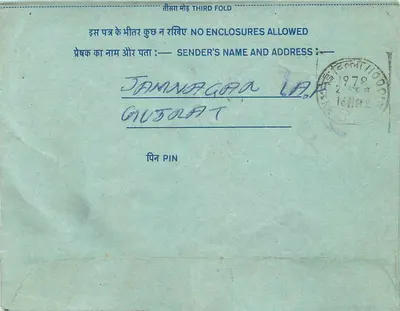 तीसरा मोड़ THIRD FOLD
इस पत्र के भीतर कुछ न रखिए NO ENCLOSURES ALLOWED
प्रेषक का नाम और पता :— SENDER'S NAME AND ADDRESS :—
JAMNAGAR
GUJRAT
पिन PIN
1972